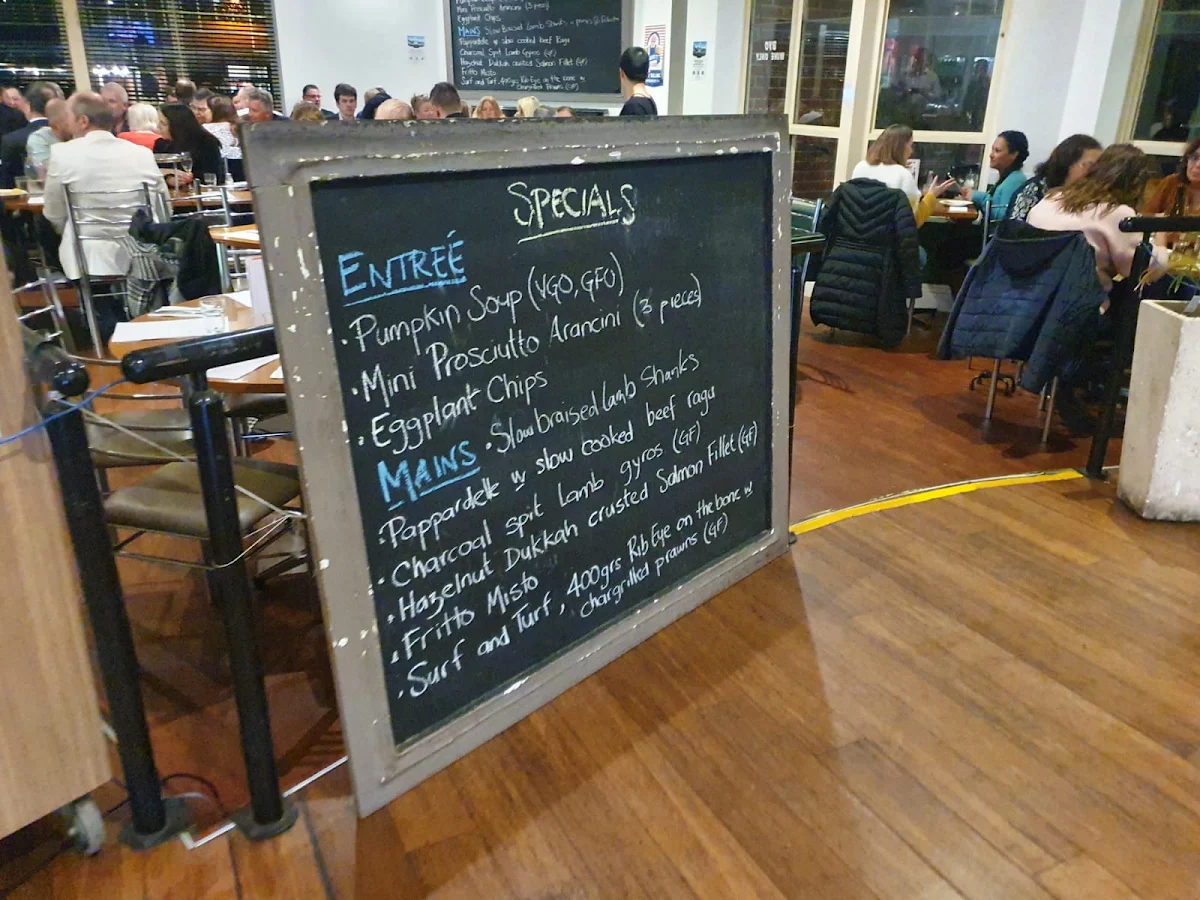 Eggplant Chips
MAINS Slow Braised Lamb Shanks
Pappardelle w slow cooked beef Ragu
Charcoal Spit Lamb Gyros (GF)
Hazelnut Dukkah crusted Salmon Fillet (GF)
Fritto Misto
Surf and Turf, 400grs Rib Eye on the bone w
Chargrilled Prawns (GF)
BYO
WINE ONLY
SPECIALS
ENTREÉ
· Pumpkin Soup (VGO, GFO)
· Mini Prosciutto Arancini (3 pieces)
· Eggplant Chips
MAINS · Slow braised lamb Shanks
· Pappardelle w slow cooked beef ragu
· Charcoal spit Lamb gyros (GF)
· Hazelnut Dukkah crusted Salmon Fillet (GF)
· Fritto Misto
· Surf and Turf, 400grs Rib Eye on the bone w
chargrilled prawns (GF)